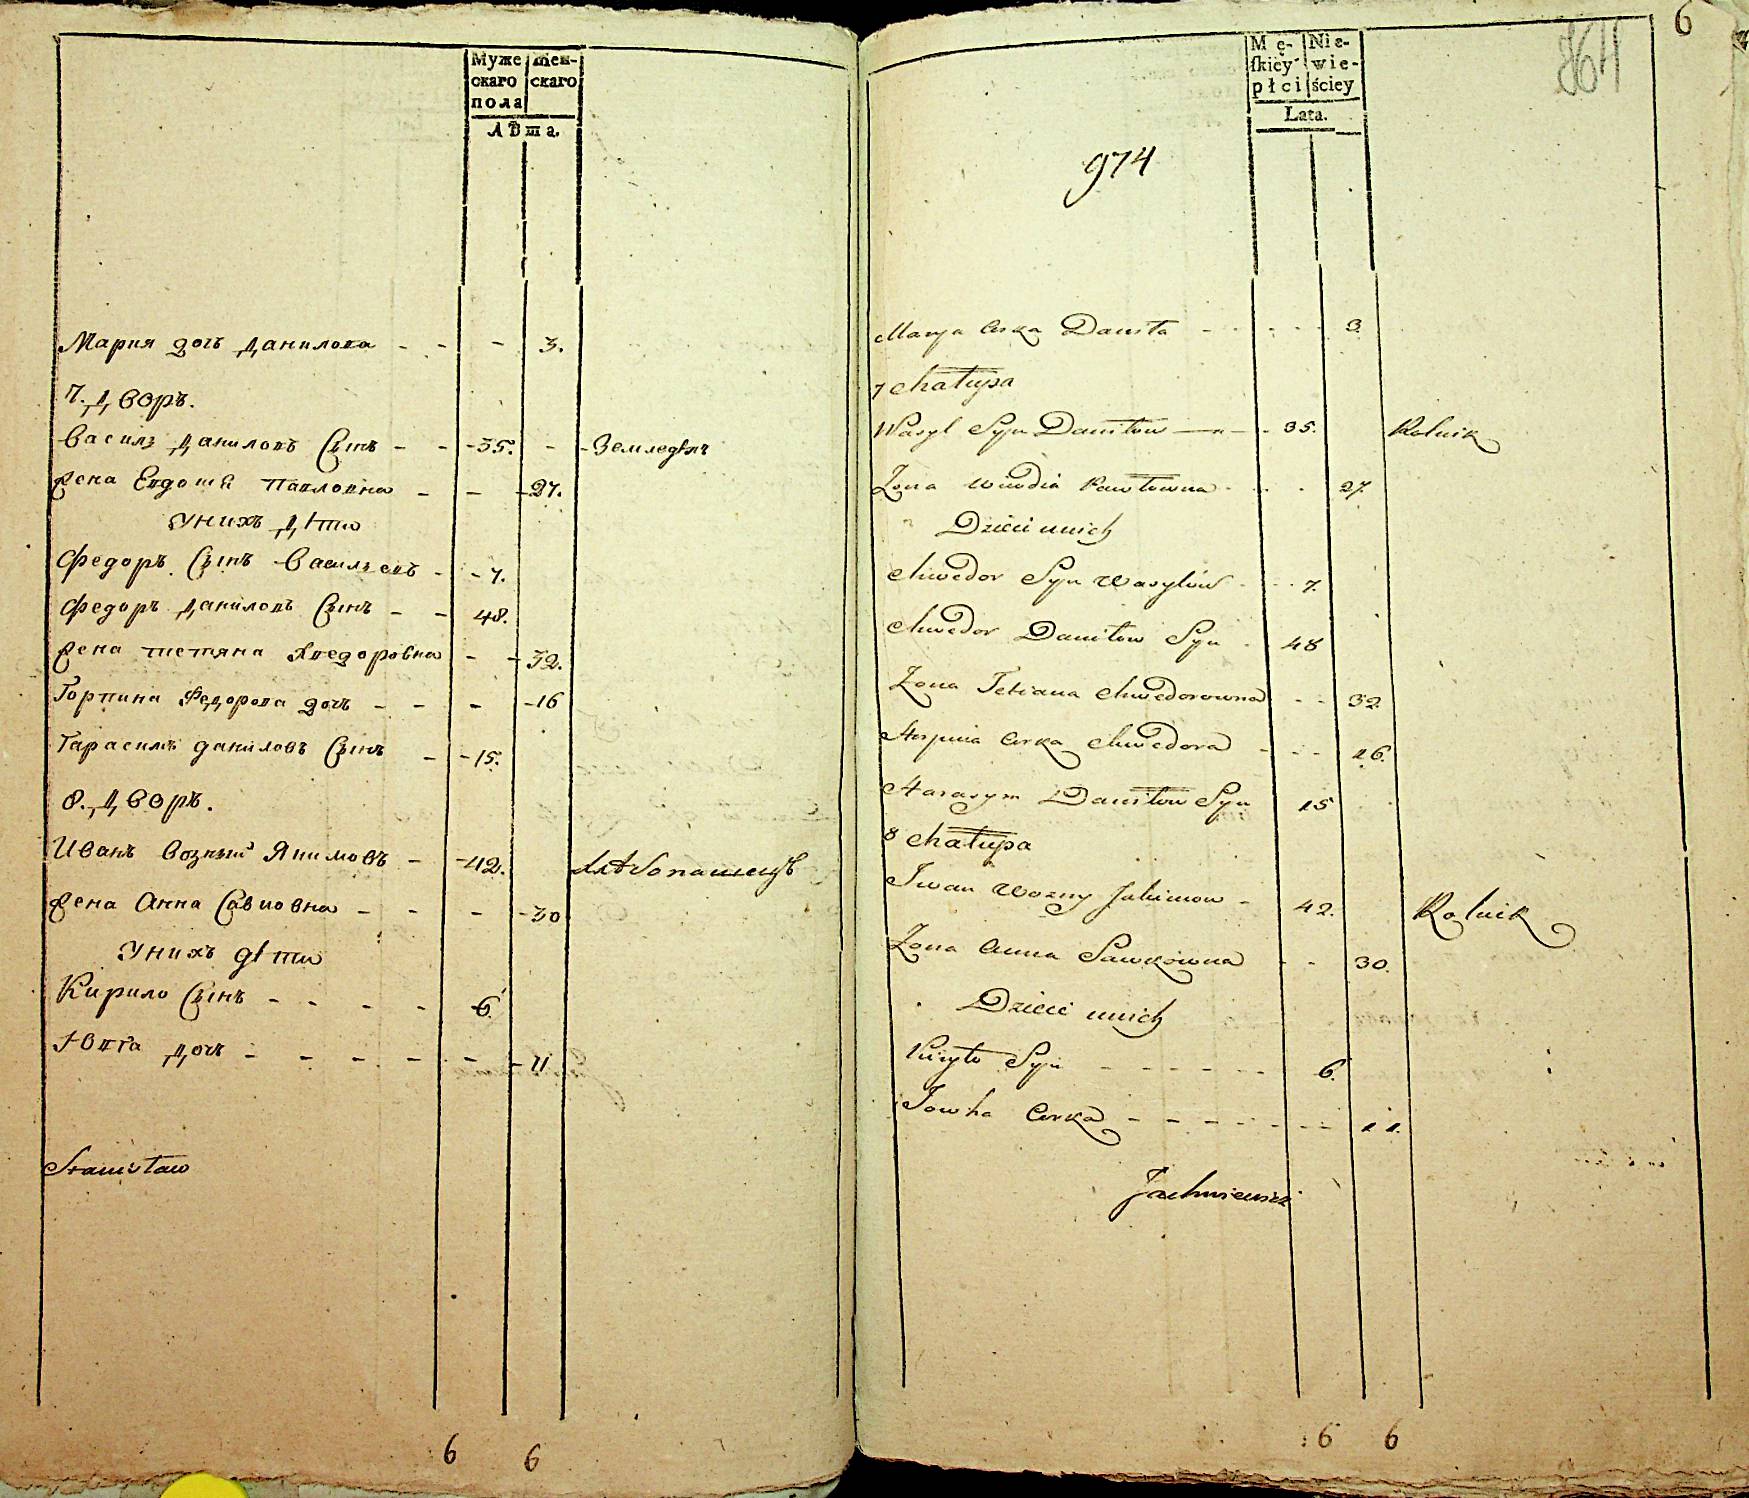 Муже- Жен-
скаго скаго
пола
Лѣта.
Мария дочь Данилова - - - 3.
7. Дворъ.
Василь Даниловъ Сынъ - - - 35. - - Земледѣлъ
Жена Евдотя Павловна - - - 27.
У нихъ Дѣти
Федоръ Сынъ Васильевъ - - 7.
Федоръ Даниловъ Сынъ - - 48.
Жена Тетяна Хведоровна - - 32.
Горпина Федорова дочь - - - - 16
Гарасимъ Даниловъ Сынъ - - 15.
8. Дворъ.
Иванъ Возный Якимовъ - - 42.
Жена Анна Савковна - - - - 30
У нихъ дѣти
Кирило Сынъ - - - - 6.
Ювга Дочь - - - - - - 11
Stanisław
6 6
6
974
Mę- Nie-
skiey wie-
płci ściey
Lata.
Marya Curka Daniła - - - - 3.
7 Chałupa
Wasyl Syn Daniłow - - 35. Rolnik
Żona Wiwdia Pawłowna - - - 27.
Dzieci u nich
Chwedor Syn Wasylów - - - 7.
Chwedor Daniłow Syn - 48
Żona Tetiana Chwedorowna - - 32.
Horpina Curka Chwedora - - - 16.
Harasym Daniłow Syn 15
8 Chałupa
Iwan Wozny Jakimow - 42. Rolnik
Żona Anna Sawkowna - - 30.
Dzieci u nich
Kiryło Syn - - - - - 6.
Jowha Curka - - - - - - 11.
Jachniewicz
6 6